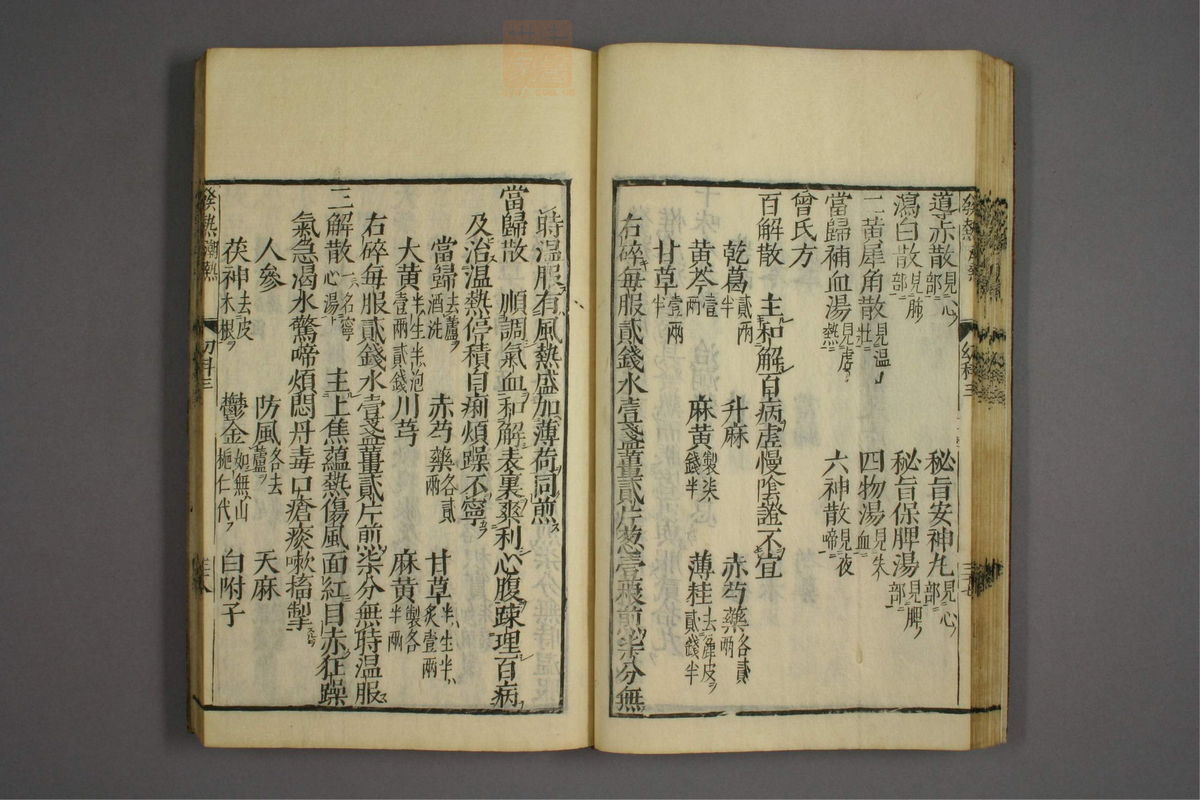 導赤散見心部 秘旨安神丸見心部
瀉白散見肺部 秘旨保脾湯見脾部
二黃犀角散見溫壮 四物湯見失血
當歸補血湯見虐熱 六神散見夜啼
曾氏方
百解散 主和解百病虛慢陰證不宜
乾葛貳兩半 升麻 赤芍藥各貳兩
黃芩壹兩 麻黃製柒錢半 薄桂去麄皮貳錢半
甘草壹兩半
右碎每服貳錢水壹盞薑貳片葱壹根煎柒分無
時溫服有風熱盛加薄荷同煎
當歸散 順調氣血和解表裏爽利心腹疎理百病
及治溫熱停積自痢煩躁不寧
當歸去蘆酒洗 赤芍藥各貳兩 甘草半生半炙壹兩
大黃半生半泡壹兩貳錢 川芎 麻黃製各半兩
右碎每服貳錢水壹盞薑貳片煎柒分無時溫服
三解散一名寧心湯 主上焦蘊熱傷風面紅目赤狂躁
氣急渴水驚啼煩悶丹毒口瘡痰嗽搐掣
人參 防風各去蘆 天麻
茯神去皮木根 鬱金如無山梔仁代 白附子
發熱潮熱 幼科三 三八